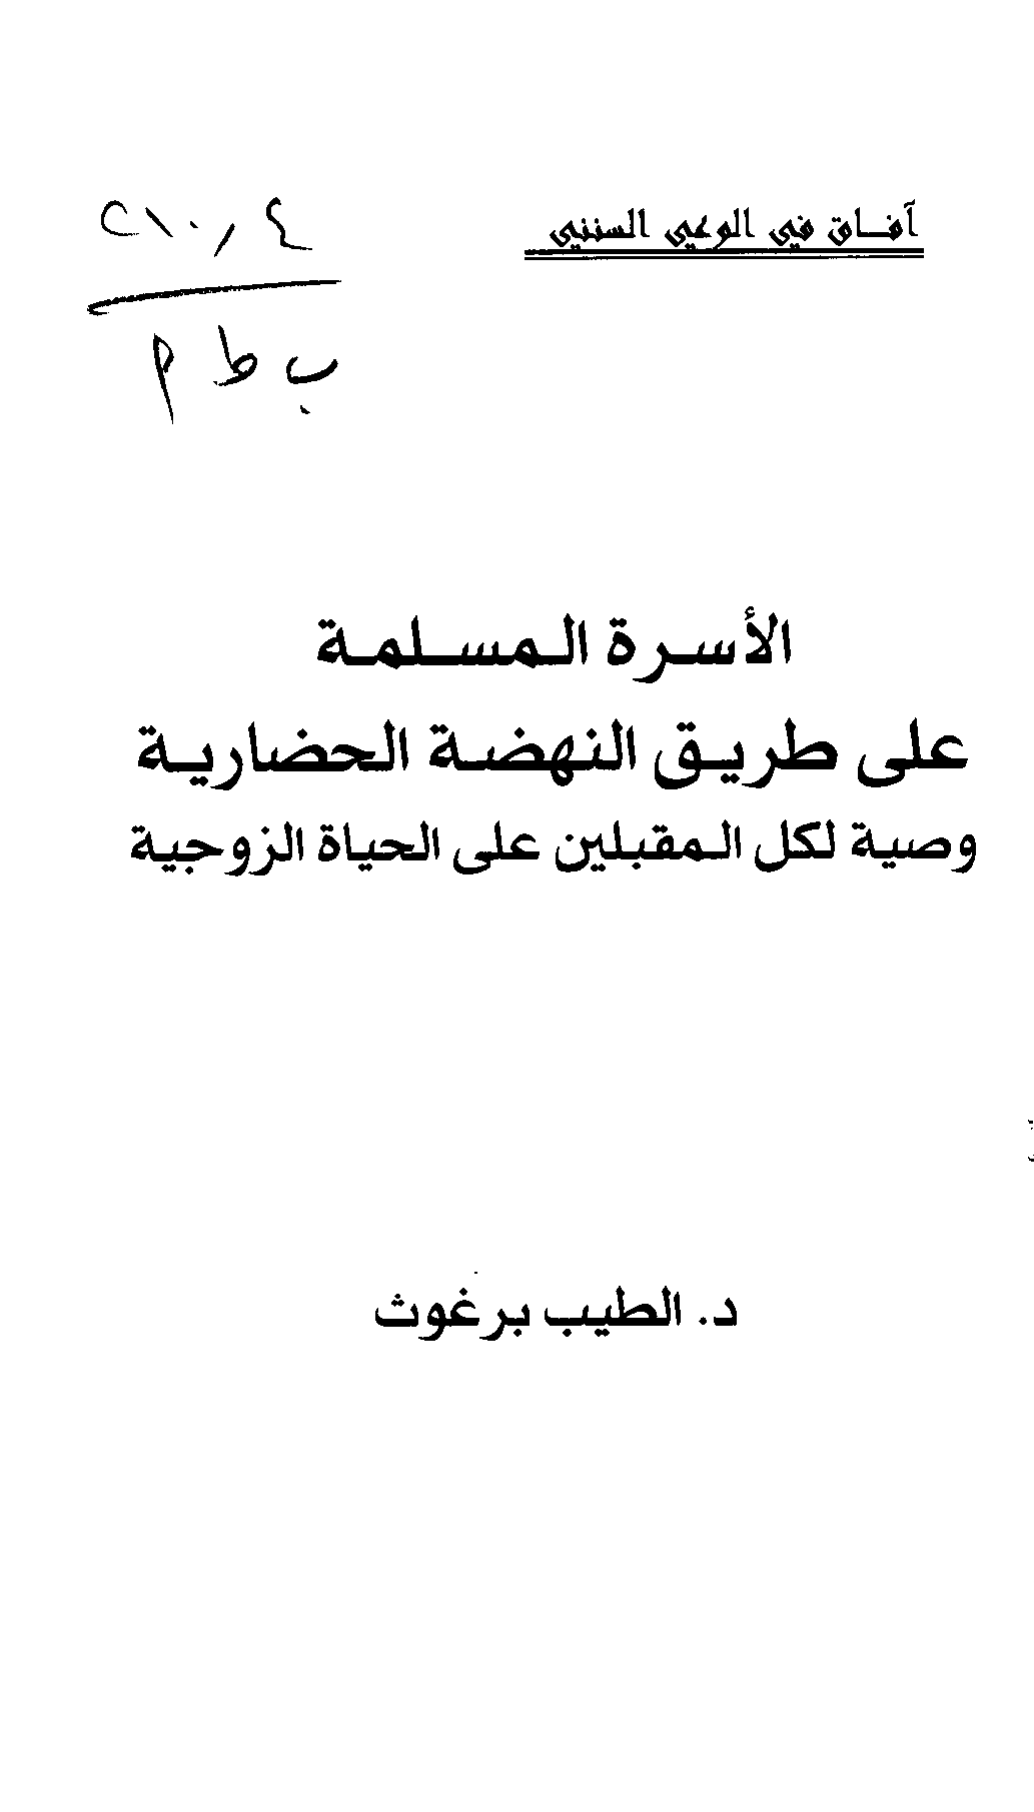 آفاق في الوعي السنني
٢١٠,٤
ب ط م
الأسرة المسلمة
على طريق النهضة الحضارية
وصية لكل المقبلين على الحياة الزوجية
د. الطيب برغوث